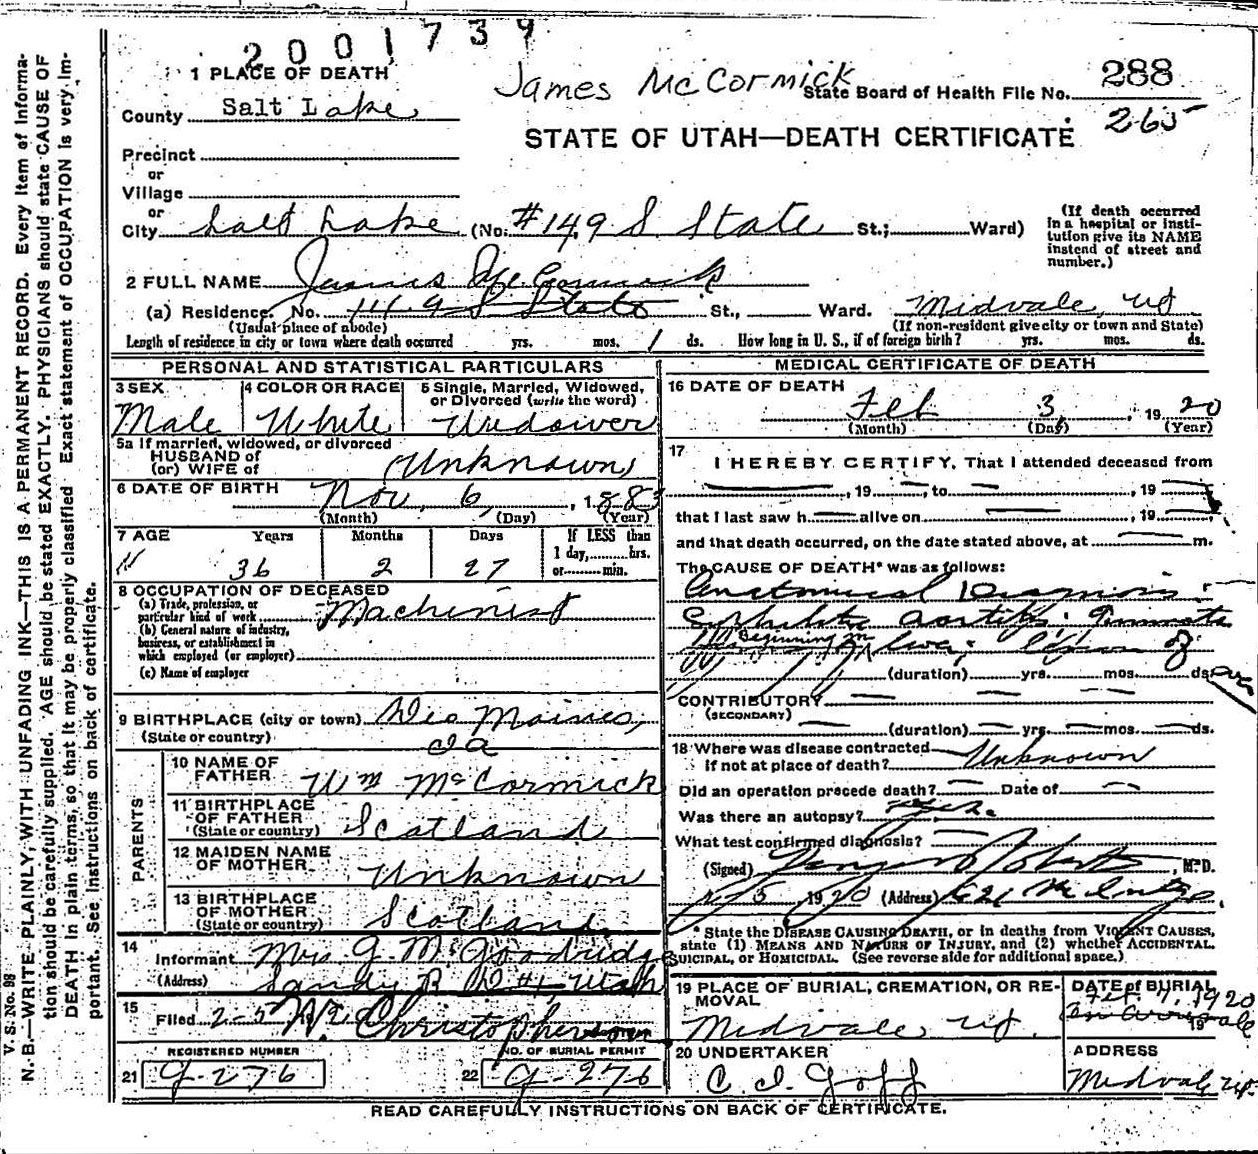 2001739
1 PLACE OF DEATH
James McCormick
State Board of Health File No. 288
265
County Salt Lake
STATE OF UTAH—DEATH CERTIFICATE
Precinct
or
Village
or
City Salt Lake (No. #149 S State St.; Ward)
(If death occurred in a hospital or institution give its NAME instead of street and number.)
2 FULL NAME James McCormick
(a) Residence. No. 149 S State St., Ward. Midvale, Ut
(Usual place of abode) (If non-resident give city or town and State)
Length of residence in city or town where death occurred yrs. mos. 1 ds. How long in U. S., if of foreign birth? yrs. mos. ds.
PERSONAL AND STATISTICAL PARTICULARS
3 SEX
Male
4 COLOR OR RACE
White
5 Single, Married, Widowed, or Divorced (write the word)
Widower
5a If married, widowed, or divorced
HUSBAND of
(or) WIFE of Unknown
6 DATE OF BIRTH Nov. 6, 1883
(Month) (Day) (Year)
7 AGE Years Months Days If LESS than
1 day, hrs.
or min.
36 2 27
8 OCCUPATION OF DECEASED
(a) Trade, profession, or
particular kind of work Machinist
(b) General nature of industry,
business, or establishment in
which employed (or employer)
(c) Name of employer
9 BIRTHPLACE (city or town) Des Moines,
(State or country) Ia
PARENTS
10 NAME OF
FATHER Wm McCormick
11 BIRTHPLACE
OF FATHER
(State or country) Scotland
12 MAIDEN NAME
OF MOTHER Unknown
13 BIRTHPLACE
OF MOTHER
(State or country) Scotland
14
Informant Mrs G. M. Goodridge
(Address) Sandy R D #1 Utah
15
Filed 2-5 Christopherson
REGISTERED NUMBER
21 g-276
NO. OF BURIAL PERMIT
22 g-276
MEDICAL CERTIFICATE OF DEATH
16 DATE OF DEATH
Feb 3, 1920
(Month) (Day) (Year)
17
I HEREBY CERTIFY, That I attended deceased from
, 19 , to , 19
that I last saw h alive on , 19
and that death occurred, on the date stated above, at m.
The CAUSE OF DEATH* was as follows:
Anatomical Diagnosis:
Syphilitic Aortitis: Gummata
Beginning in liver;
(duration) yrs. mos. ds.
CONTRIBUTORY
(SECONDARY)
(duration) yrs. mos. ds.
18 Where was disease contracted
If not at place of death? Unknown
Did an operation precede death? Date of
Was there an autopsy? yes.
What test confirmed diagnosis?
(Signed) Roberts, M. D.
5 1920 (Address) 621 McIntyre
* State the DISEASE CAUSING DEATH, or in deaths from VIOLENT CAUSES,
state (1) MEANS AND NATURE OF INJURY, and (2) whether ACCIDENTAL,
SUICIDAL, or HOMICIDAL. (See reverse side for additional space.)
19 PLACE OF BURIAL, CREMATION, OR REMOVAL
Midvale Ut.
DATE of BURIAL
Feb. 7, 1920
19
20 UNDERTAKER
C I Goff
ADDRESS
Midvale Ut.
READ CAREFULLY INSTRUCTIONS ON BACK OF CERTIFICATE.
V. S. No. 98
N. B.—WRITE PLAINLY, WITH UNFADING INK—THIS IS A PERMANENT RECORD. Every item of information should be carefully supplied. AGE should be stated EXACTLY. PHYSICIANS should state CAUSE OF DEATH in plain terms, so that it may be properly classified. Exact statement of OCCUPATION is very important. See instructions on back of certificate.